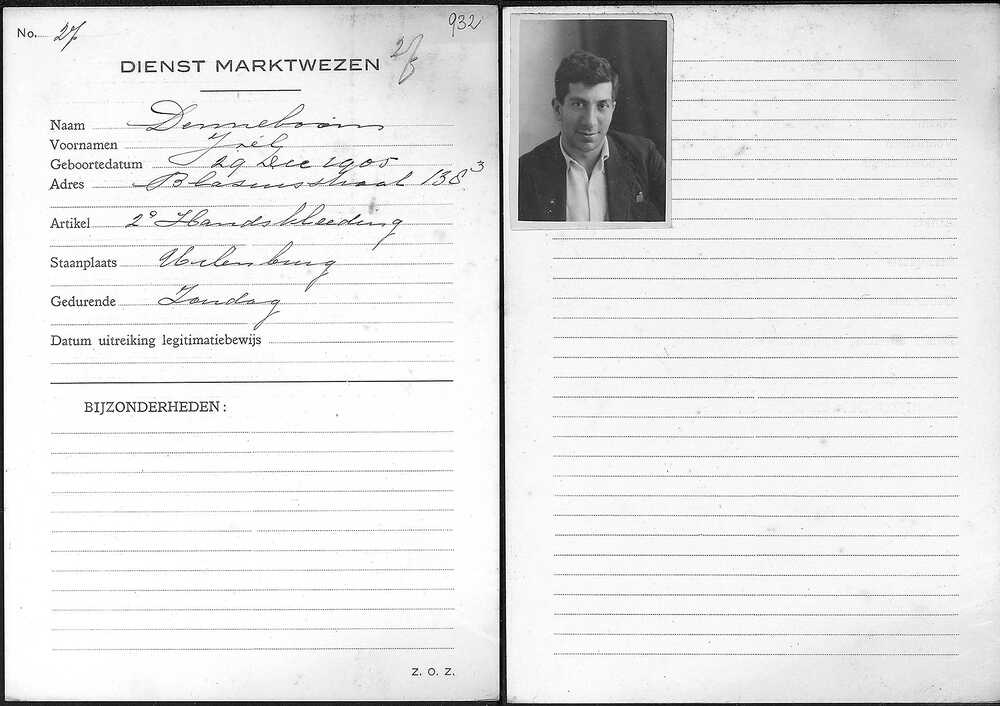 No. 27
932
27
DIENST MARKTWEZEN
Naam Denneboom
Voornamen Joël
Geboortedatum 29 Dec 1905
Adres Blasiusstraat 138 3
Artikel 2º Handskleeding
Staanplaats Uilenburg
Gedurende Zondag
Datum uitreiking legitimatiebewijs
BIJZONDERHEDEN:
Z. O. Z.